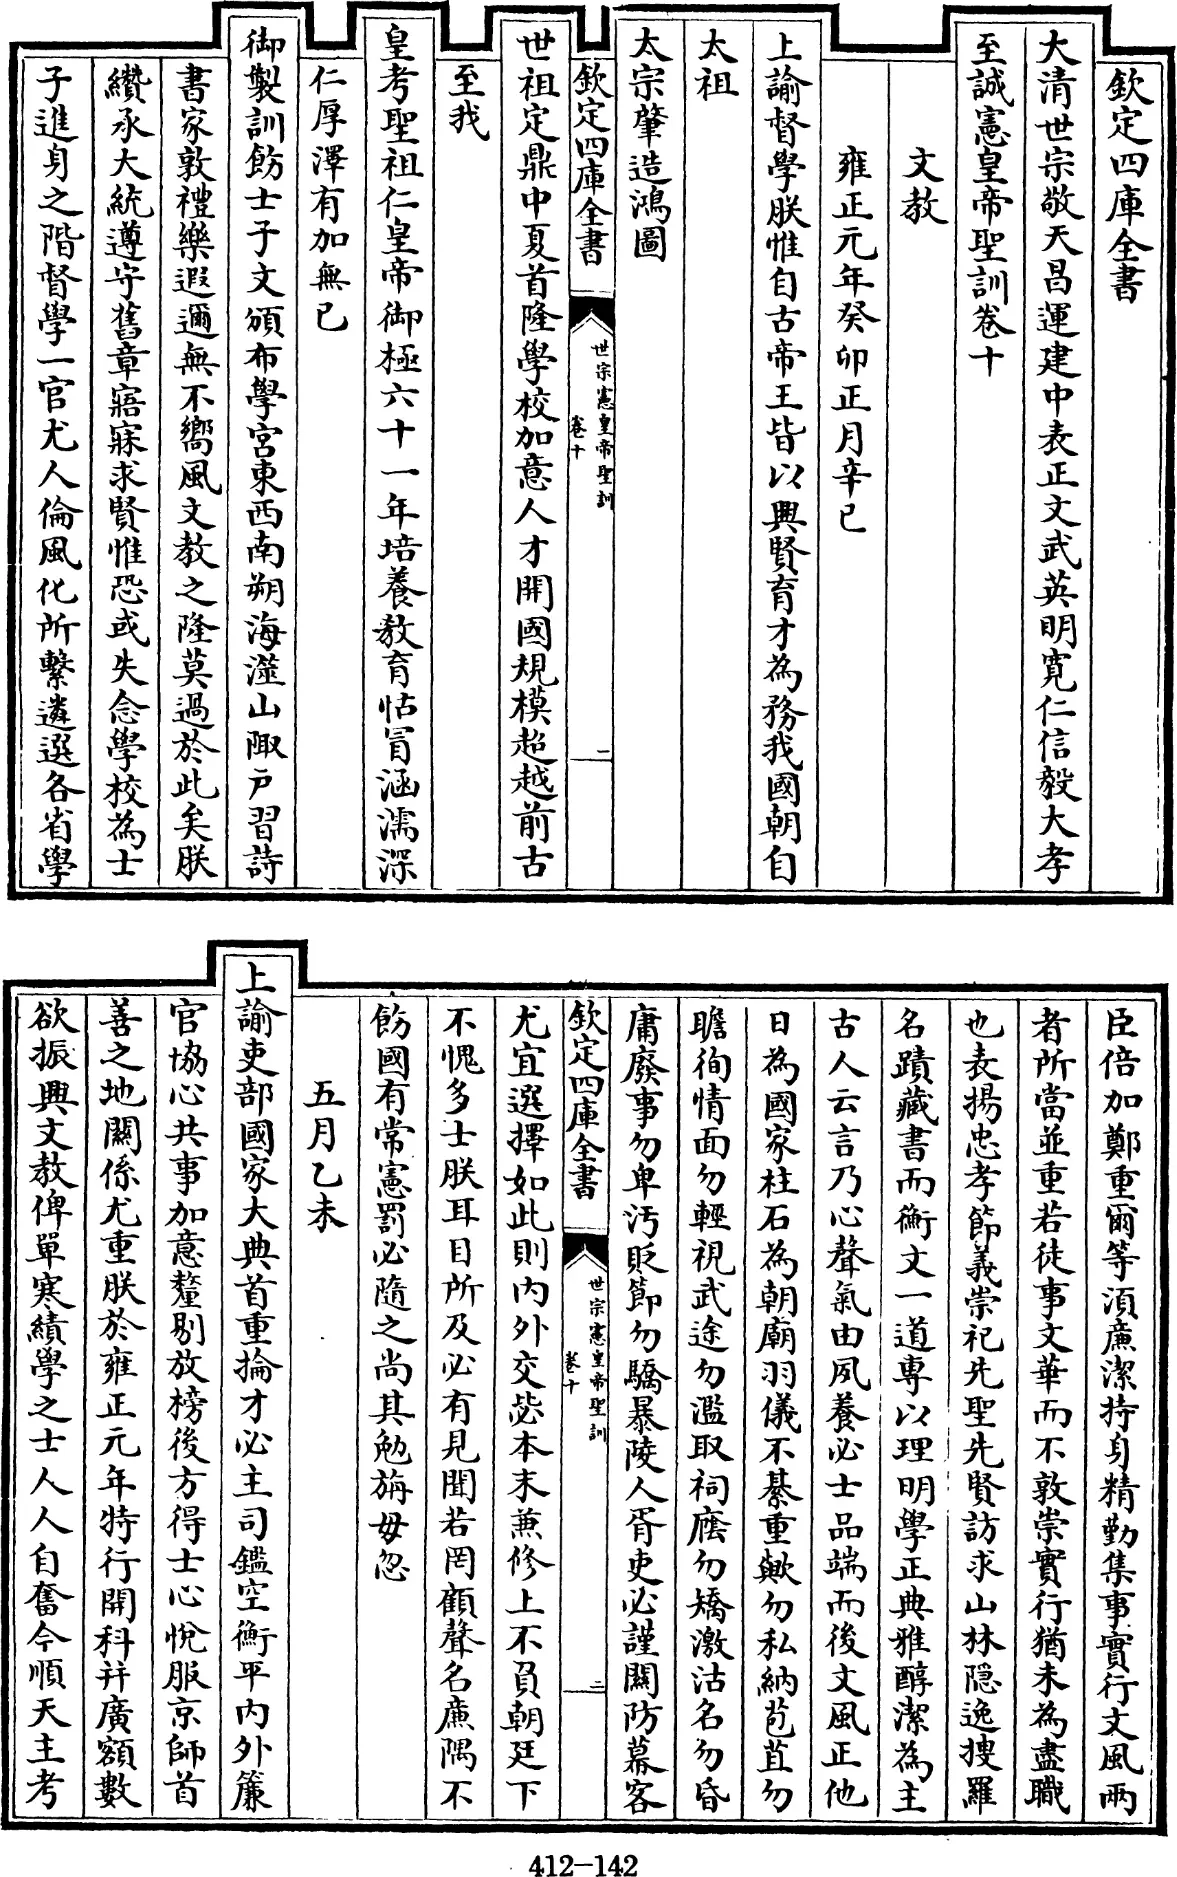 欽定四庫全書
大清世宗敬天昌運建中表正文武英明寛仁信毅大孝
至誠憲皇帝聖訓卷十
文教
雍正元年癸卯正月辛巳
上諭督學朕惟自古帝王皆以興賢育才為務我國朝自
太祖
太宗肇造鴻圖
欽定四庫全書
世宗憲皇帝聖訓
卷十
二
世祖定鼎中夏首隆學校加意人才開國規模超越前古
至我
皇考聖祖仁皇帝御極六十一年培養教育怙冐涵濡深
仁厚澤有加無已
御製訓飭士子文頒布學宮東西南朔海澨山陬戶習詩
書家敦禮樂遐邇無不嚮風文教之隆莫過於此矣朕
纘承大統遵守舊章寤寐求賢惟恐或失念學校為士
子進身之階督學一官尤人倫風化所繫遴選各省學
臣倍加鄭重爾等湏廉潔持身精勤集事實行文風兩
者所當並重若徒事文華而不敦崇實行猶未為盡職
也表揚忠孝節義崇祀先聖先賢訪求山林隠逸搜羅
名蹟藏書而衡文一道專以理明學正典雅醇潔為主
古人云言乃心聲氣由夙養必士品端而後文風正他
日為國家柱石為朝廟羽儀不綦重歟勿私納苞苴勿
瞻徇情面勿輕視武途勿濫取祠廕勿矯激沽名勿昏
庸廢事勿卑汚貶節勿驕暴陵人胥吏必謹關防幕客
欽定四庫全書
世宗憲皇帝聖訓
卷十
三
尤宜選擇如此則内外交毖本末兼修上不負朝廷下
不愧多士朕耳目所及必有見聞若罔顧聲名廉隅不
飭國有常憲罰必隨之尚其勉旃毋忽
五月乙未
上諭吏部國家大典首重掄才必主司鑑空衡平内外簾
官協心共事加意釐剔放榜後方得士心悅服京師首
善之地關係尤重朕於雍正元年特行開科并廣額數
欲振興文教俾單寒績學之士人人自奮今順天主考
412-142